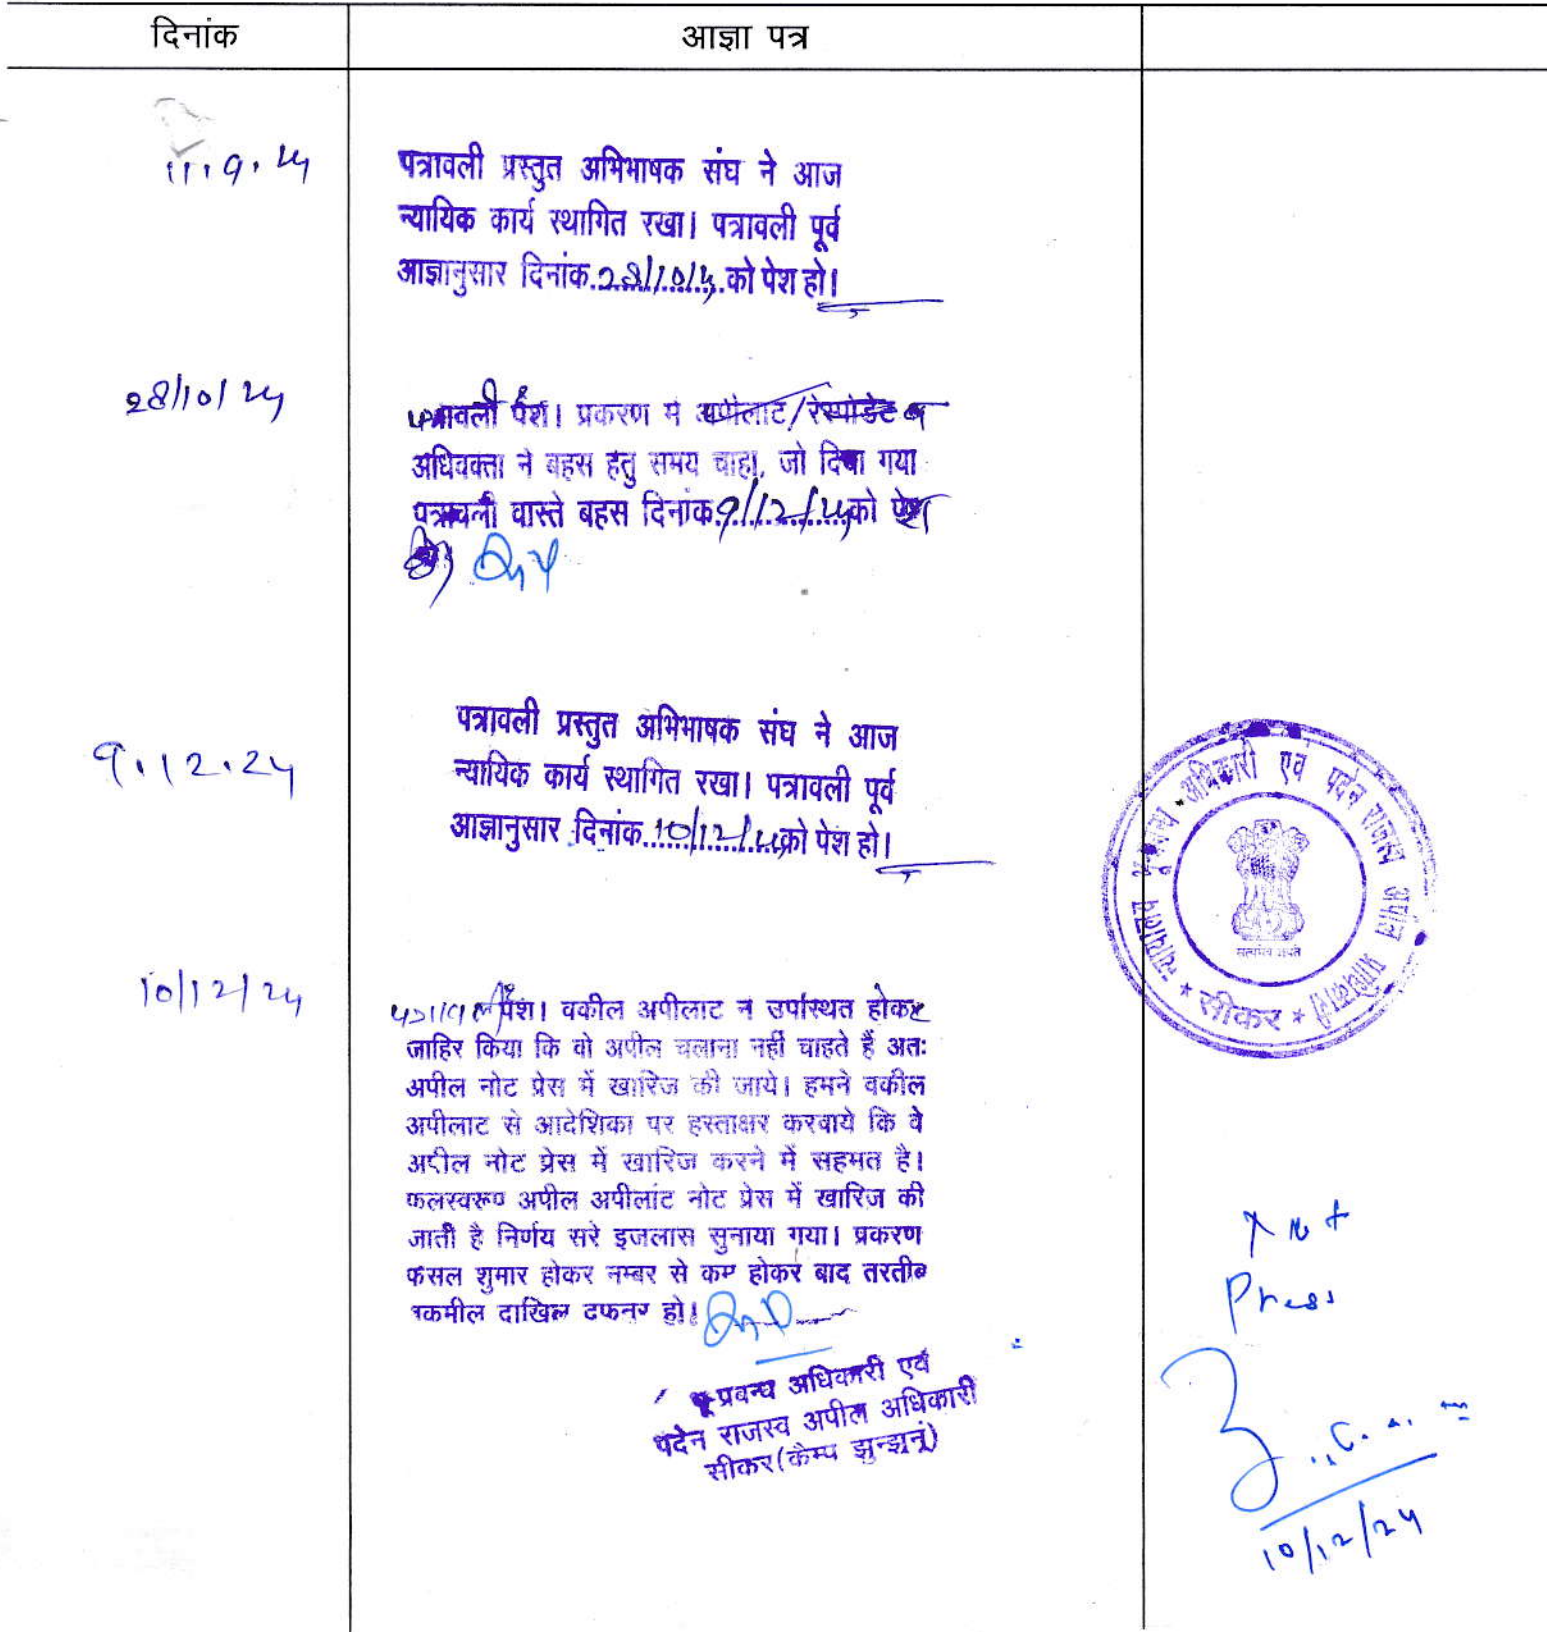 दिनांक
आज्ञा पत्र
11.9.24
पत्रावली प्रस्तुत अभिभाषक संघ ने आज
न्यायिक कार्य स्थागित रखा। पत्रावली पूर्व
आज्ञानुसार दिनांक 28/10/24 को पेश हो।
28/10/24
पत्रावली पेश। प्रकरण में अपीलाट/रेस्पोडेट
अधिवक्ता ने बहस हेतु समय चाहा, जो दिया गया
पत्रावली वास्ते बहस दिनांक 9/12/24 को पेश
हो।
9.12.24
पत्रावली प्रस्तुत अभिभाषक संघ ने आज
न्यायिक कार्य स्थागित रखा। पत्रावली पूर्व
आज्ञानुसार दिनांक 10/12/24 को पेश हो।
न्यायालय भू प्रबन्ध अधिकारी एवं पदेन राजस्व अपील अधिकारी
सत्यमेव जयते
* सीकर *
10/12/24
पत्रावली पेश। वकील अपीलाट ने उपस्थित होकर
जाहिर किया कि वो अपील चलाना नहीं चाहते हैं अतः
अपील नोट प्रेस में खारिज की जाये। हमने वकील
अपीलाट से आदेशिका पर हस्ताक्षर करवाये कि वे
अपील नोट प्रेस में खारिज करने में सहमत है।
फलस्वरूप अपील अपीलांट नोट प्रेस में खारिज की
जाती है निर्णय सरे इजलास सुनाया गया। प्रकरण
फैसल शुमार होकर नम्बर से कम होकर बाद तरतीब
तकमील दाखिल दफ्तर हो।
भू प्रबन्ध अधिकारी एवं
पदेन राजस्व अपील अधिकारी
सीकर(कैम्प झुन्झुनूं)
Not
Press
10/12/24